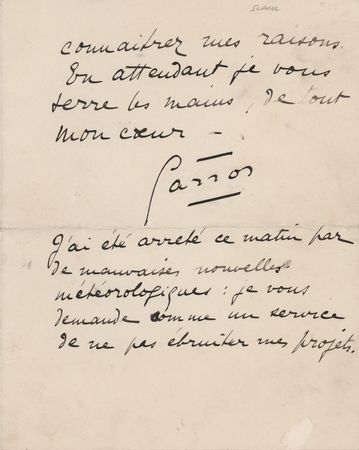 connaitrez mes raisons.
En attendant je vous
serre les mains, de tout
mon cœur -
Garros
J'ai été arreté ce matin par
de mauvaises nouvelles
météorologiques : je vous
demande comme un service
de ne pas ébruiter mes projets.